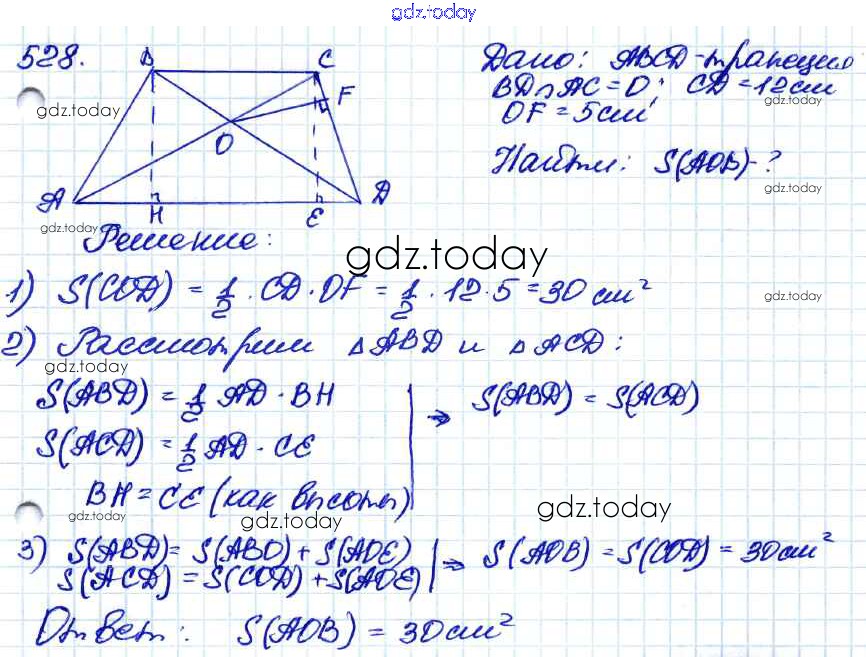 gdz.today
528.
B C
Дано: ABCD-трапеция
BD∩AC=O; CD=12см
F
gdz.today
gdz.today
OF=5см
O
Найти: S(AOB)-?
gdz.today
A H E D
gdz.today
Решение:
gdz.today
1) S(COD) = 1/2 · CD · OF = 1/2 · 12 · 5 = 30 см²
gdz.today
2) Рассмотрим △ABD и △ACD:
gdz.today
S(ABD) = 1/2 AD · BH
⇒ S(ABD) = S(ACD)
S(ACD) = 1/2 AD · CE
BH = CE (как высоты)
gdz.today
gdz.today
gdz.today
3) S(ABD) = S(ABO) + S(AOE)
⇒ S(AOB) = S(COD) = 30см²
S(ACD) = S(COD) + S(AOE)
Ответ: S(AOB) = 30см²